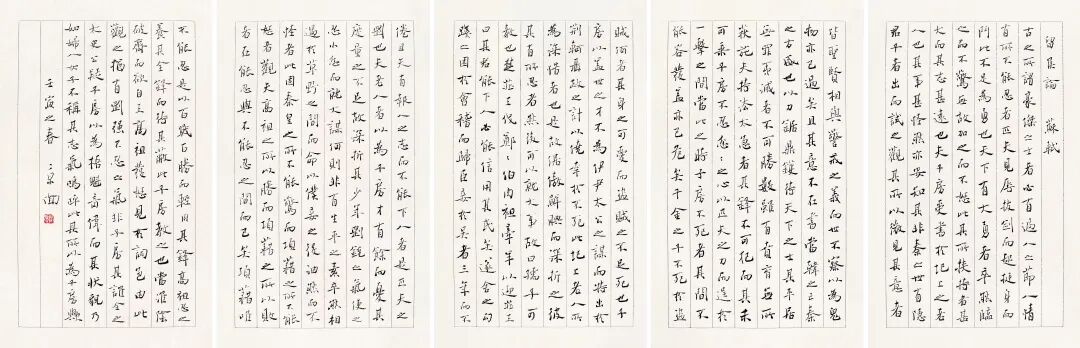 留侯論 蘇軾
古之所謂豪傑之士者必有過人之節人情
有所不能忍者匹夫見辱拔劍而起挺身而
鬥此不足為勇也天下有大勇者卒然臨
之而不驚無故加之而不怒此其所挾持者甚
大而其志甚遠也夫子房受書於圯上之老
人也其事甚怪然亦安知其非秦之世有隱
君子者出而試之觀其所以微見其意者
皆聖賢相與警戒之義而世不察以為鬼
物亦已過矣且其意不在書當韓之亡秦
之方盛也以刀鋸鼎鑊待天下之士其平居
無罪夷滅者不可勝數雖有賁育無所
獲施夫持法太急者其鋒不可犯而其末
可乘子房不忍忿忿之心以匹夫之力而逞於
一擊之間當此之時子房不死者其間不
能容髮蓋亦已危矣千金之子不死於盜
賊何者其身之可愛而盜賊之不足死也子
房以蓋世之才不為伊尹太公之謀而特出於
荊軻聶政之計以僥幸於不死此圯上老人所
為深惜者也是故倨傲鮮腆而深折之彼
其有所忍者然後可以就大事故曰孺子可
教也楚莊王伐鄭鄭伯肉袒牽羊以迎莊王
曰其君能下人必能信用其民矣遂舍之勾
踐之困於會稽而歸臣妾於吳者三年而不
倦且夫有報人之志而不能下人者是匹夫之
剛也夫老人者以為子房才有餘而憂其
度量之不足故深折其少年剛銳之氣使之
忍小忿而就大謀何則非有生平之素卒然相
遇於草野之間而命以僕妾之役油然而不
怪者此固秦皇之所不能驚而項籍之所不能
怒者觀夫高祖之所以勝而項籍之所以敗
者在能忍與不能忍之間而已矣項籍唯
不能忍是以百戰百勝而輕用其鋒高祖忍之
養其全鋒而待其斃此子房教之也當淮陰
破齊而欲自王高祖發怒見於詞色由此
觀之猶有剛強不忍之氣非子房其誰全之
太史公疑子房以為梧魁奇偉而其狀貌乃
如婦人女子不稱其志氣嗚呼此其所以為子房歟
壬寅之春